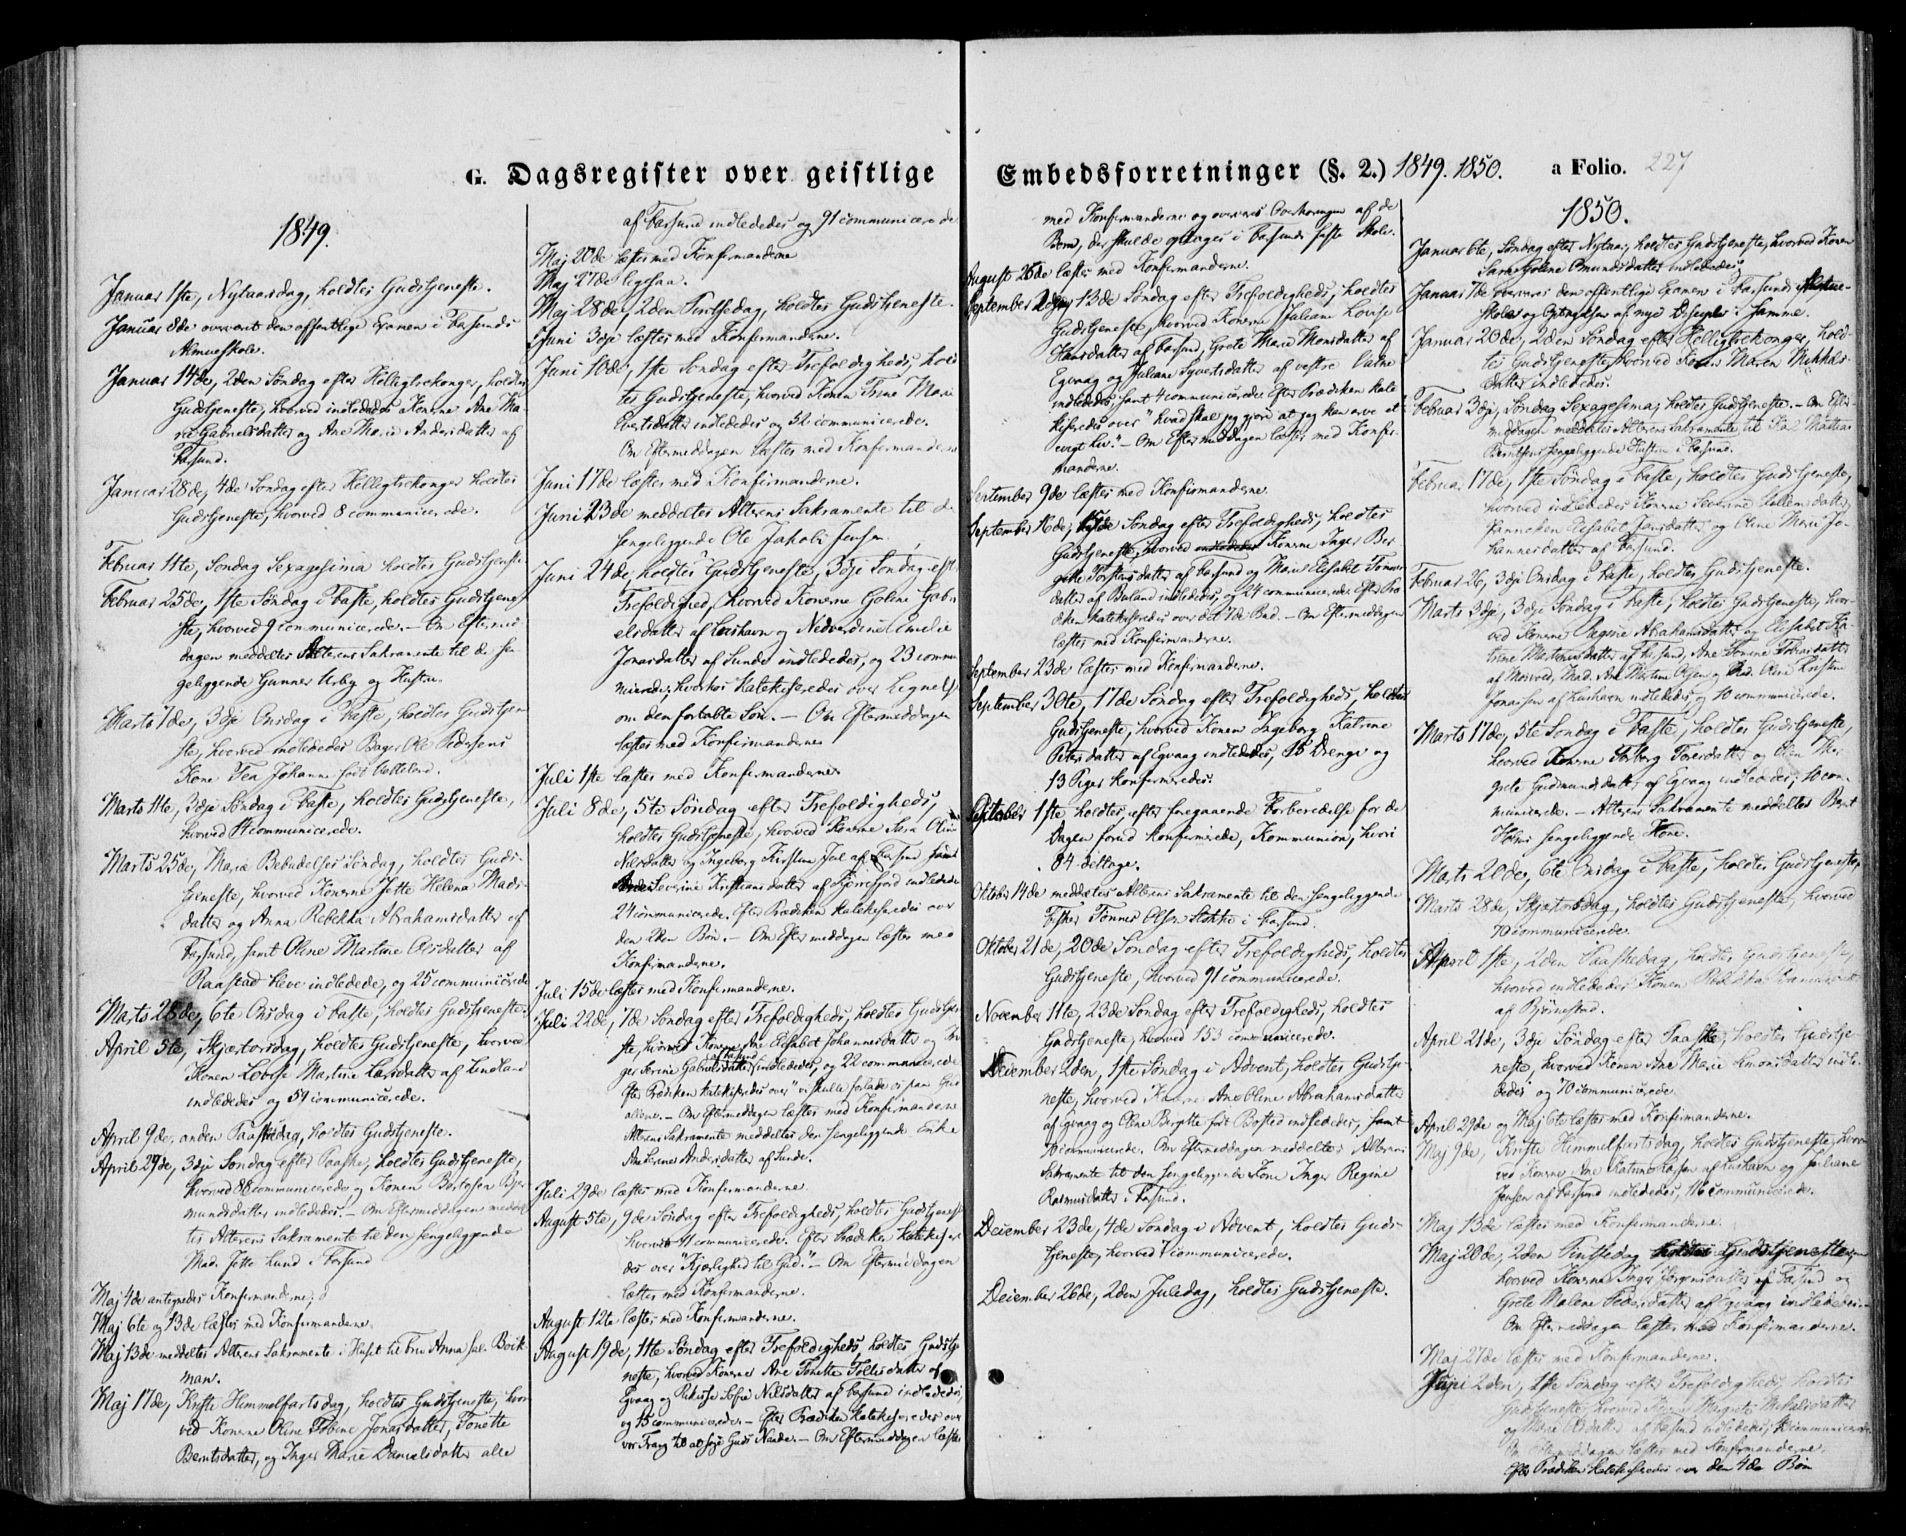 G. Dagsregister over geistlige Embedsforretninger (§. 2.) 1849. 1850. a Folio. 227
1849.
Januar 1ste, Nytaarsdag, holdtes Gudstjeneste.
Januar 8de overværet den offentlige Examen i Farsunds
Almueskole.
Januar 14de, 2den Søndag efter Helligtrekonger, holdtes
Gudstjeneste, hvorved indlededes Konerne Ane Ma-
rie Gabrielsdatter og Ane Marie Andersdatter af
Farsund.
Januar 28de, 4de Søndag efter Helligtrekonger holdtes
Gudstjeneste, hvorved 8 communicerede.
Februar 11te, Søndag Sexagesima holdtes Gudstjeneste
Februar 25de, 1ste Søndag i Faste, holdtes Gudstjene-
ste, hvorved 9 communicerede. - Om Eftermid
dagen meddeltes Alterens Sakramente til de sen-
geliggende Gunner Urby og Hustru.
Marts 7de, 3dje Onsdag i Faste, holdtes Gudstjen-
ste, hvorved indlededes Bager Ole Pedersens
Kone Tea Johanne født
Marts 11te, 3dje Søndag i Faste, holdtes Gudstjeneste,
hvorved communicerede.
Marts 25de, Mariæ Bebudelses Søndag, holdtes Guds-
tjeneste, hvorved Konerne Jette Helena Mads-
datter og Anna Rebekka Abrahamsdatter af
Farsund, samt Oline Martine Olsdatter af
indledede, og 25 communicerede
Marts 28de, 6te Onsdag i Faste, holdtes Gudstjeneste.
April 5te, Skjærtorsdag, holdtes Gudstjeneste, hvorved
Konen Lovise Martine Larsdatter af
indlededes og 51 communicerede.
April 9de, anden Paaskedag, holdtes Gudstjeneste.
April 29de, 3dje Søndag efter Paaske, holdtes Gudstjeneste,
hvorved 88 communicerede og Konen
mundsdatter indlededes. - Om Eftermiddagen meddel-
tes Alterens Sakramente til den sengeliggende
Mad. Jette Lund i Farsund
Maj 4de antegnedes Konfirmanderne.
Maj 6te og 13de læstes med Konfirmanderne.
Maj 13de meddeltes Alterens Sakramente i Huset til Fru Anna
man.
Maj 17de, Kristi Himmelfartsdag, holdtes Gudstjeneste, hvor
ved Konerne Oline Tobine Jonasdatter, Tonette
Berntsdatter, og Inger Marie Danielsdatter alle
af Farsund indlededes og 91 communicerede
Maj 20de læstes med Konfirmanderne
Maj 27de ligesaa.
Maj 28de, 2den Pintsedag, holdtes Gudstjeneste.
Juni 3dje læstes med Konfirmanderne.
Juni 10de, 1ste Søndag efter Trefoldigheds, hold
tes Gudstjeneste, hvorved Konen Trine Marie
Evertsdatter indlededes og 52 communicerede.
Om Eftermiddagen læstes med Konfirmanderne
Juni 17de læstes med Konfirmanderne.
Juni 23de meddeltes Alterens Sakramente til d
sengeliggende Ole Jakob Jensen.
Juni 24de, holdtes Gudstjeneste, 3dje Søndag eft
Trefoldighed, hvorved Konerne Goline Gabri
elsdatter af Loshavn og Emelie
Jonasdatter af Lunde indlededes, og 23 commu
nicerede; hvorhos katekiseredes over Lignels
om den fortabte Søn. - Om Eftermiddagen
læstes med Konfirmanderne
Juli 1ste læstes med Konfirmanderne
Juli 8de, 5te Søndag efter Trefoldigheds,
holdtes Gudstjeneste, hvorved Konerne Olin
Nilsdatter og Ingeborg Kirstine Juel af Farsund samt
Severine Kristiansdatter af indledede
24 communicerede. Efter Prædiken katekiseredes over
den 2den Bøn. - Om Eftermiddagen læstes med
Konfirmanderne.
Juli 15de læstes med Konfirmanderne.
Juli 22de, 7de Søndag efter Trefoldigheds, holdtes Gudstjene-
ste, hvorved Konerne Ane Elisabet Johannesdatter og
ger Serine Gabrielsdatter af Farsund indlededes, og 22 communicerede
Efter Prædiken katekiseredes over "vi skulle forlade os paa Gud
alene. - Om Eftermiddagen læstes med Konfirmanderne
Alterens Sakramente meddeltes den sengeliggende Enke
Andersdatter af Lunde.
Juli 29de læstes med Konfirmanderne.
August 5te, 9de Søndag efter Trefoldigheds, holdtes Gudstjeneste
hvorved 11 communicerede. Efter Prædiken katekisere-
des over "Kjærlighed til Gud." - Om Eftermiddagen
læstes med Konfirmanderne.
August 12te læstes med Konfirmanderne.
August 19de, 11te Søndag efter Trefoldigheds, holdtes Gudstje
neste, hvorved Konerne Ane Tonette Tollisdatter af
Egvaag og Sofie Nilsdatter af Farsund indlededes
og 15 communicerede. - Efter Prædiken katekiseredes over
vor Trang til at søge Guds Naade. - Om Eftermiddagen læstes
med Konfirmanderne og overværes Overhøringen af de
Børn, der skulde optages i Farsunds faste Skole.
August 26de læstes med Konfirmanderne.
September 2den, 13de Søndag efter Trefoldigheds, holdtes
Gudstjeneste, hvorved Konerne Juliane Lovise
Hansdatter af Farsund, Grete Marie Monsdatter af
Egvaag og Juliane Syvertsdatter af vestre
indlededes samt 4 communicerede. Efter Prædiken kate
kiseredes over "hvad skal jeg gjøre at jeg kan arve et
evigt Liv." - Om Eftermiddagen læstes med Konfir-
manderne.
September 9de læstes med Konfirmanderne.
September 16de, 15de Søndag efter Trefoldigheds, holdtes
Gudstjeneste, hvorved Konerne Inger Ber
gitte Torstensdatter af Farsund og Maren Elisabet Tønnes
datter af Buland indlededes, og 24 communicerede. Efter Præ
diken katekiseredes over det 7de Bud. - Om Eftermiddagen
læstes med Konfirmanderne.
September 23de læstes med Konfirmanderne.
September 30te, 17de Søndag efter Trefoldigheds, holdtes
Gudstjeneste, hvorved Konen Ingeborg Katrine
Petersdatter af Egvaag indlededes, 15 Drenge og
13 Piger konfirmeredes.
Oktober 1ste holdtes, efter foregaaende Forberedelse for de
Dagen forud konfirmerede, Kommunion, hvori
84 deltoge.
Oktober 14de meddeltes Alterens Sakramente til den sengeliggende
Fisker Tønnes Olsen i Farsund.
Oktober 21de, 20de Søndag efter Trefoldigheds, holdtes
Gudstjeneste, hvorved 91 communicerede.
November 11te, 23de Søndag efter Trefoldigheds, holdtes
Gudstjeneste, hvorved 153 communicerede.
December 2den, 1ste Søndag i Advent, holdtes Gudstje
neste, hvorved Konerne Ane Oline Abrahamsdatter
af Egvaag og Oline Bergitte født indlededes, samt
70 communicerede. Om Eftermiddagen meddeltes Alterens
Sakramente til den sengeliggende Kone Inger Regine
Rasmusdatter i Farsund.
December 23de, 4de Søndag i Advent, holdtes Guds-
tjeneste, hvorved 7 communicerede.
December 26de, 2den Juledag, holdtes Gudstjeneste.
1850.
Januar 6te, Søndag efter Nytaar, holdtes Gudstjeneste, hvorved Konen
Goline Omundsdatter indlededes
Januar 7de overværes den offentlige Examen i Farsunds Almue-
skole og Optagelsen af nye Disciple i samme.
Januar 20de, 2den Søndag efter Helligtrekonger, hold-
tes Gudstjeneste, hvorved Konen Maren Mikkels-
datter indlededes.
Februar 3dje, Søndag Sexagesima, holdtes Gudstjeneste. - Om Efter
middagen meddeltes Alterens Sakramente til Karl Mathias
Berntsens sengeliggende Hustru i Farsund.
Februar 17de, 1ste Søndag i Faste, holdtes Gudstjeneste,
hvorved indlededes Konerne Severine
Elisabet Jensdatter og Oline Marie Jo-
hannesdatter af Farsund.
Februar 26, 3dje Onsdag i Faste, holdtes Gudstjeneste.
Marts 3dje, 3dje Søndag i Faste, holdtes Gudstjeneste, hvor-
ved Konerne Abrahamsdatter og Elisabet Ka-
trine Mortensdatter af Farsund, Ane Tobiasdatter
af Mad. Ane Martine Olsen og Mad. Oline
Jonassen af Loshavn indlededes, og 10 communicerede.
Marts 17de, 5te Søndag i Faste, holdtes Gudstjeneste,
hvorved Konerne Torborg Toresdatter og
grete Gudmundsdatter af Egvaag indlededes, 10 com-
municerede. - Alterens Sakramente meddeltes Bernt
Holms sengeliggende Kone.
Marts 20de, 6te Onsdag i Faste, holdtes Gudstjeneste.
Marts 28de, Skjærtorsdag, holdtes Gudstjeneste, hvorved
70 communicerede.
April 1ste, 2den Paaskedag, holdtes Gudstjeneste,
hvorved indlededes Konen
af Bjørnestad.
April 21de, 3dje Søndag efter Paaske, holdtes Gudstje
neste, hvorved Konen Ane Marie Simonsdatter indle-
dedes og 70 communicerede.
April 29de og Maj 6te læstes med Konfirmanderne.
Maj 9de, Kristi Himmelfartsdag, holdtes Gudstjeneste, hvor
ved Konerne Ane Katrine Larsen af Loshavn og Juliane
Jensen af Farsund indlededes, 116 communicerede.
Maj 13de læstes med Konfirmanderne.
Maj 20de, 2den Pintsedag holdtes Gudstjeneste,
hvorved Konerne Inger Jørgensdatter af Farsund og
Grete Malene Pedersdatter af Egvaag indlededes. -
Om Eftermiddagen læstes med Konfirmanderne.
Maj 27de læstes med Konfirmanderne.
Juni 2den, 1ste Søndag efter Trefoldigheds holdtes
Gudstjeneste, hvorved Konen
og Marie Olsdatter af Farsund indlededes, communicerede.
Om Eftermiddagen læstes med Konfirmanderne.
Efter Prædiken katekiseredes over den 4de Bøn